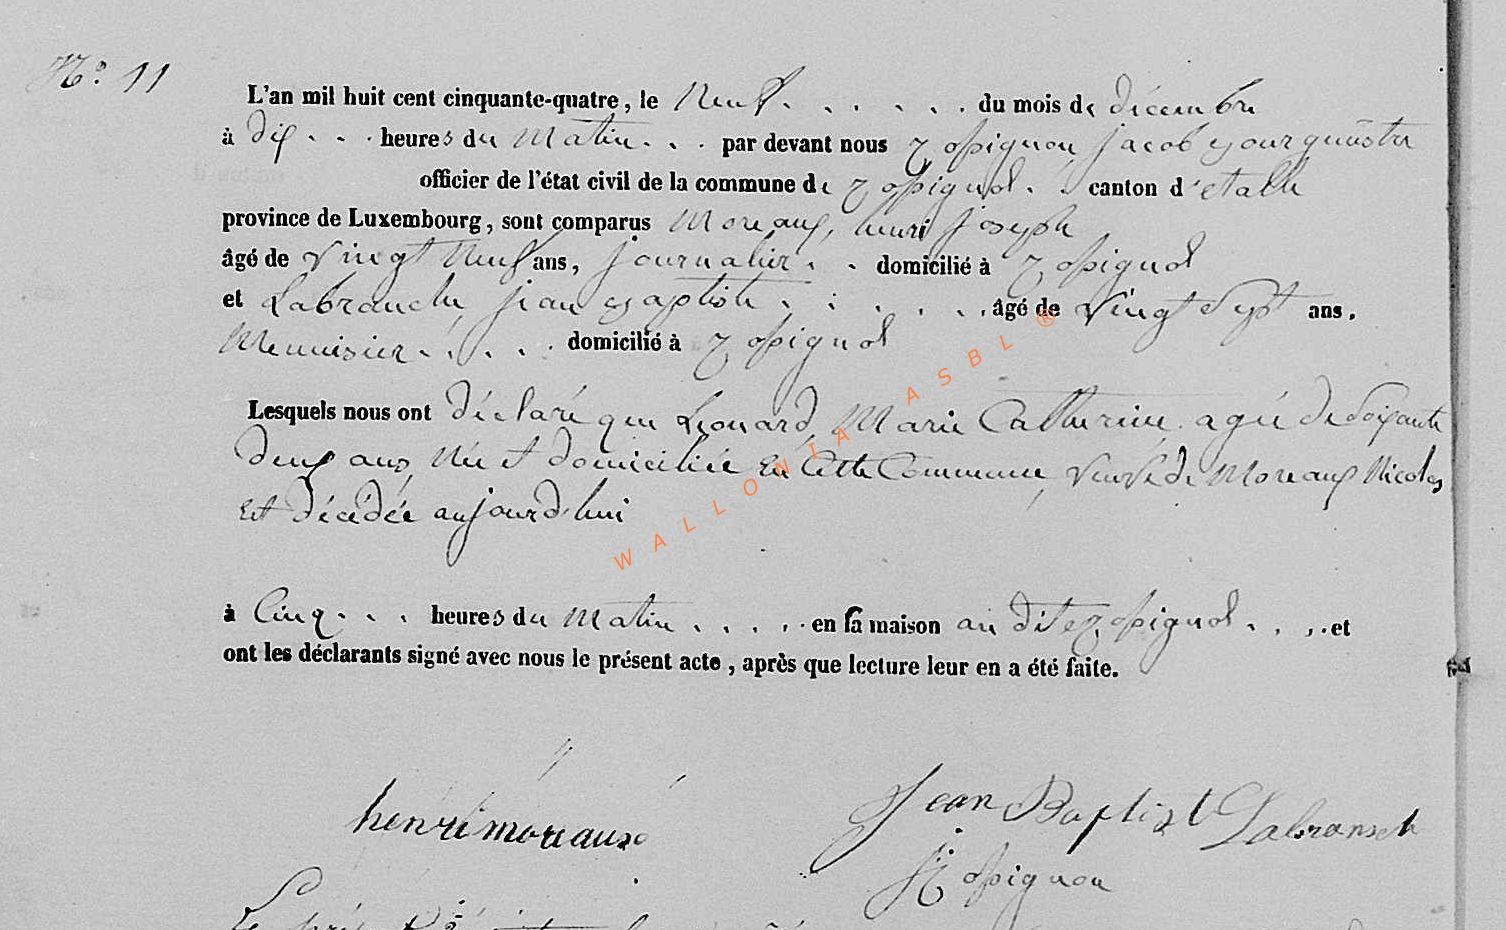 N° 11
L'an mil huit cent cinquante-quatre, le Neuf . . . . . . du mois de décembre
à dix . . . heures du Matin . . . par devant nous rossignon, jacob bourguimstre
officier de l'état civil de la commune de rossignol . . canton d'etalle
province de Luxembourg, sont comparus Moreaux, henri joseph
âgé de Vingt Neuf ans, journalier . . domicilié à rossignol
et Labranche jean baptiste . . . . . . âgé de Vingt Sept ans.
Menuisier . . . . . domicilié à rossignol
Lesquels nous ont déclaré que Léonard, Marie Catherine agée de Soixante
deux ans, Née et domiciliée En Cette Commune, Veuve de Moreaux Nicolas
Est décédée aujourd'hui
à Cinq . . . heures du Matin . . . . . en sa maison au dite rossignol . . . . et
ont les déclarants signé avec nous le présent acte, après que lecture leur en a été faite.
henri moreaux
Jean Baptist Labransch
J: rossignon
WALLONIA ASBL ®